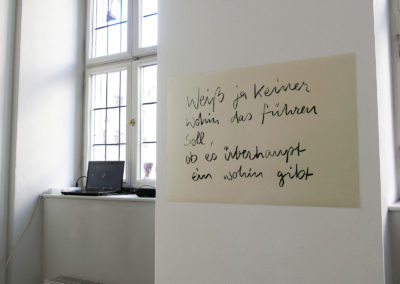 Weiß ja Keiner
wohin das führen
soll,
ob es überhaupt
ein wohin gibt